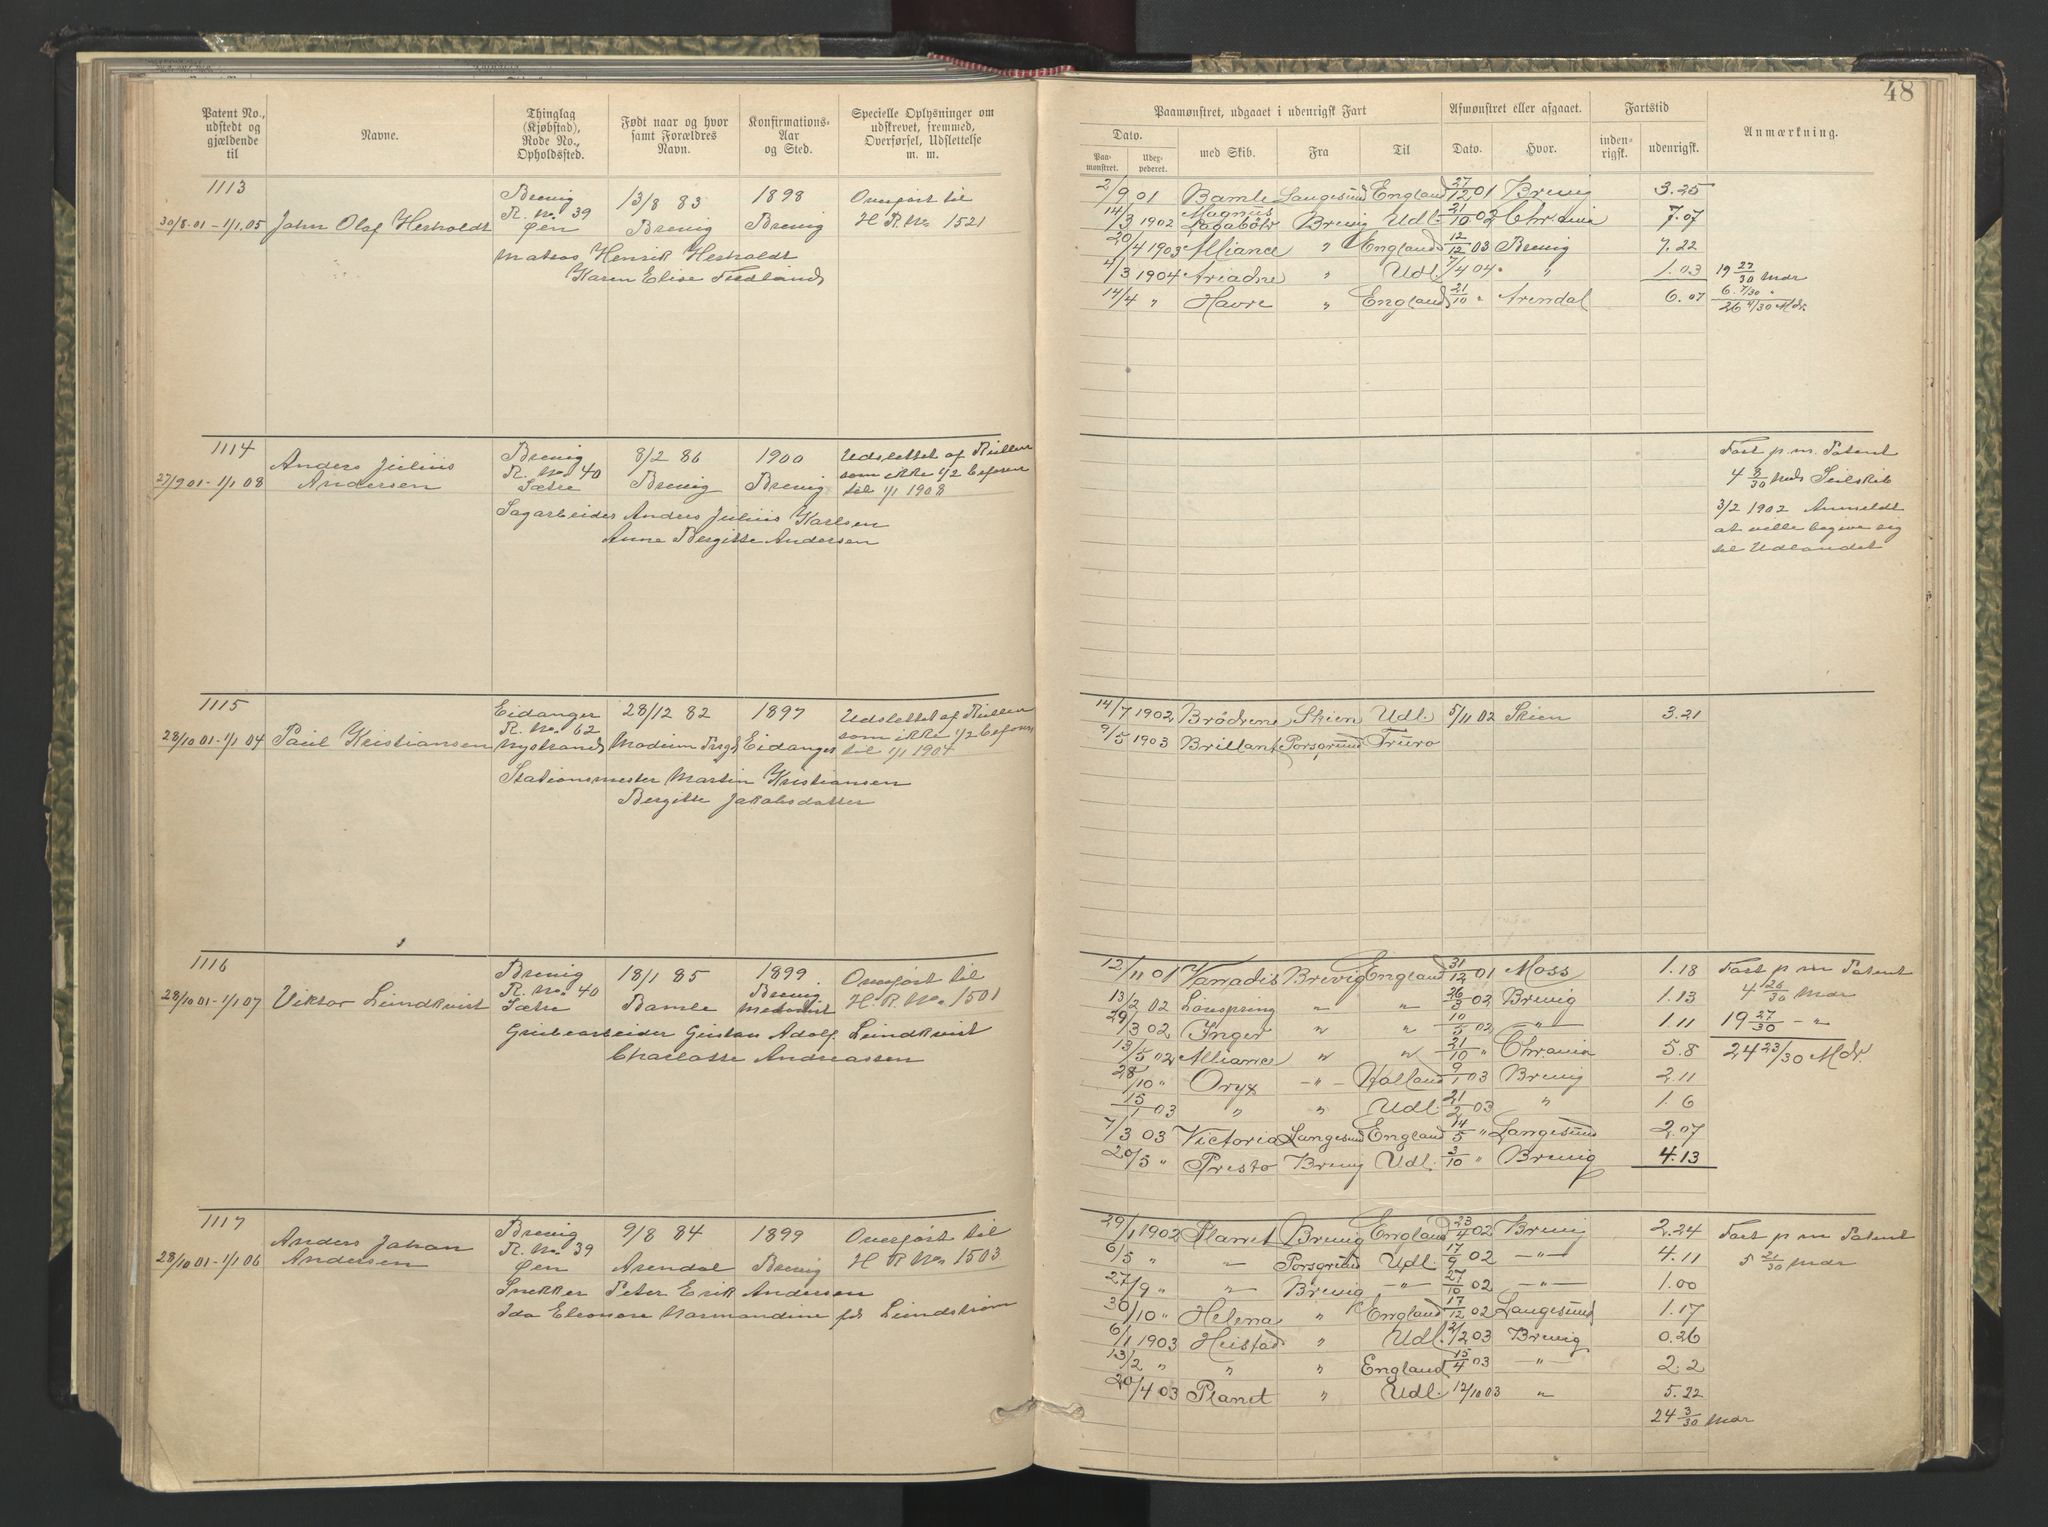 Patent No., udstedt og gjældende til
Navne.
Thinglag (Kjøbstad), Rode No., Opholdssted.
Født naar og hvor samt Forældres Navn.
Konfirmations-Aar og Sted.
Specielle Oplysninger om udskrevet, fremmed, Overførsel, Udslettelse m. m.
1113
30/8 01 - 1/1 05 John Olaf Herholdt
Brevig R. No. 39 Øen
13/8 83 Brevig
1898 Brevig
Overført til H. R. No. 1521
Matros Henrik Herholdt
Karen Elise Tredland
1114
27/9 01 - 1/1 08 Anders Julius Andersen
Brevig R. No. 40 Sætre
8/2 86 Brevig
1900 Brevig
Udslettet af Rullen
som ikke 1/2 befaren
til 1/1 1908
Sagarbeider Anders Julius Karlsen
Anne Bergitte Andersen
1115
28/10 01 - 1/1 04 Paul Kristiansen
Eidanger R. No. 62 Nystrand
28/12 82 Modum Prgj
1897 Eidanger
Udslettet af Rullen
som ikke 1/2 befaren
til 1/1 1904
Stationsmester Martin Kristiansen
Bergitte Jakobsdatter
1116
28/10 01 - 1/1 07 Viktor Lundkvist
Brevig R. No. 40 Sætre
18/1 85 Bamle
1899 Brevig Metodist
Overført til H. R. No. 1501
Grubearbeider Gustav Adolf Lundkvist
Charlotte Andreassen
1117
28/10 01 - 1/1 06 Anders Johan Andersen
Brevig R. No. 39 Øen
9/8 84 Arendal
1899 Brevig
Overført til H. R. No. 1503
Snekker Peter Erik Andersen
Ida Eleonore Normandine fdt Lundstrøm
48
Paamønstret, udgaaet i udenrigsk Fart
Afmønstret eller afgaaet.
Fartstid
Anmærkning.
Dato.
Paa-mønstret.
Udex-pederet.
med Skib.
Fra
Til
Dato.
Hvor.
inden-rigsk.
udenrigsk.
2/9 01 Bamle Langesund England 27/12 01 Brevig 3.25
14/3 1902 Magnus Lagabøtr Brevig Udl. 21/10 02 Chrania 7.07
20/4 1903 Alliance " England 12/12 03 Brevig 7.22
4/3 1904 Ariadne " Udl. 7/4 04 " 1.03 19 27/30 Mdr
14/4 " Havre " England 21/10 " Arendal 6.07 6. 7/30 "
26 4/30 Mdr.
Fart p. m. Patent
4 8/30 Mds Seilskib
3/2 1902 Anmeldt
at ville begive sig
til Udlandet
14/7 1902 Brødrene Skien Udl. 5/11 02 Skien 3.21
9/5 1903 Brillant Porsgrund Truro
12/11 01 Varradis Brevig England 31/12 01 Moss 1.18 Fart p m Patent
13/2 02 Linspring " " 26/3 02 Brevig 1.13 4 26/30 Mdr
29/3 02 Inger " " 10/5 02 " 1.11 19 27/30 - "
13/5 02 Alliance " " 21/10 " Chrania 5.8 24 23/30 Mdr.
28/10 " Oryx - " - Holland 9/1 03 Brevig 2.11
15/1 03 " " Udl. 21/2 03 " 1.6
7/3 03 Victoria Langesund England 14/5 " Langesund 2.07
20/5 " Presto Brevig Udl. 3/10 " Brevig 4.13
29/1 1902 Planet Brevig England 23/4 02 Brevig 2.24 Fart p m Patent
6/5 " " Porsgrund Udl. 17/9 02 - " - 4.11 5 21/30 Mdr
27/9 " " Brevig - " - 27/10 02 - " - 1.00
30/10 " Helena " England 17/12 02 Langesund 1.17
6/1 1903 Heistad " Udl. 2/2 03 Brevig 0.26
13/2 " " " England 15/4 03 - " - 2.2
20/4 03 Planet " Udl. 12/10 03 " 5.22
24 3/30 Mdr